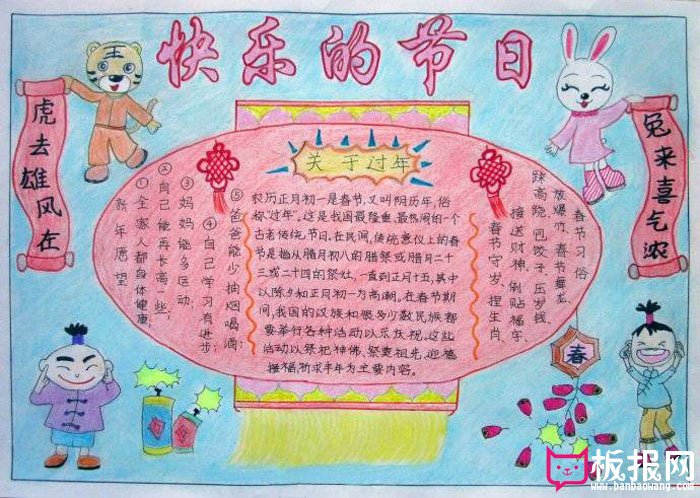 快乐的节日
虎去雄风在
兔来喜气浓
关于过年
农历正月初一是春节,又叫阴历年,俗
称"过年"。这是我国最隆重、最热闹的一个
古老传统节日。在民间,传统意义上的春
节是指从腊月初八的腊祭或腊月二十
三或二十四的祭灶,一直到正月十五,其中
以除夕和正月初一为高潮。在春节期
间,我国的汉族和很多少数民族都
要举行各种活动以示庆祝。这些
活动以祭祀神佛、祭奠祖先、迎禧
接福、祈求丰年为主要内容。
新年愿望
①全家人都身体健康;
②自己能再长高一些;
③妈妈能多运动;
④自己学习有进步;
⑤爸爸能少抽烟喝酒;
春节习俗
放爆竹、春节舞龙、
踩高跷、包饺子、压岁钱、
接送财神、倒贴福字、
春节守岁、捏生肖。
春
板报网
www.banbaowang.com